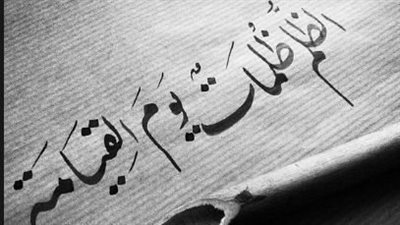 الظلم ظُلُمَاتٌ يَومَ القِيَامَةِ